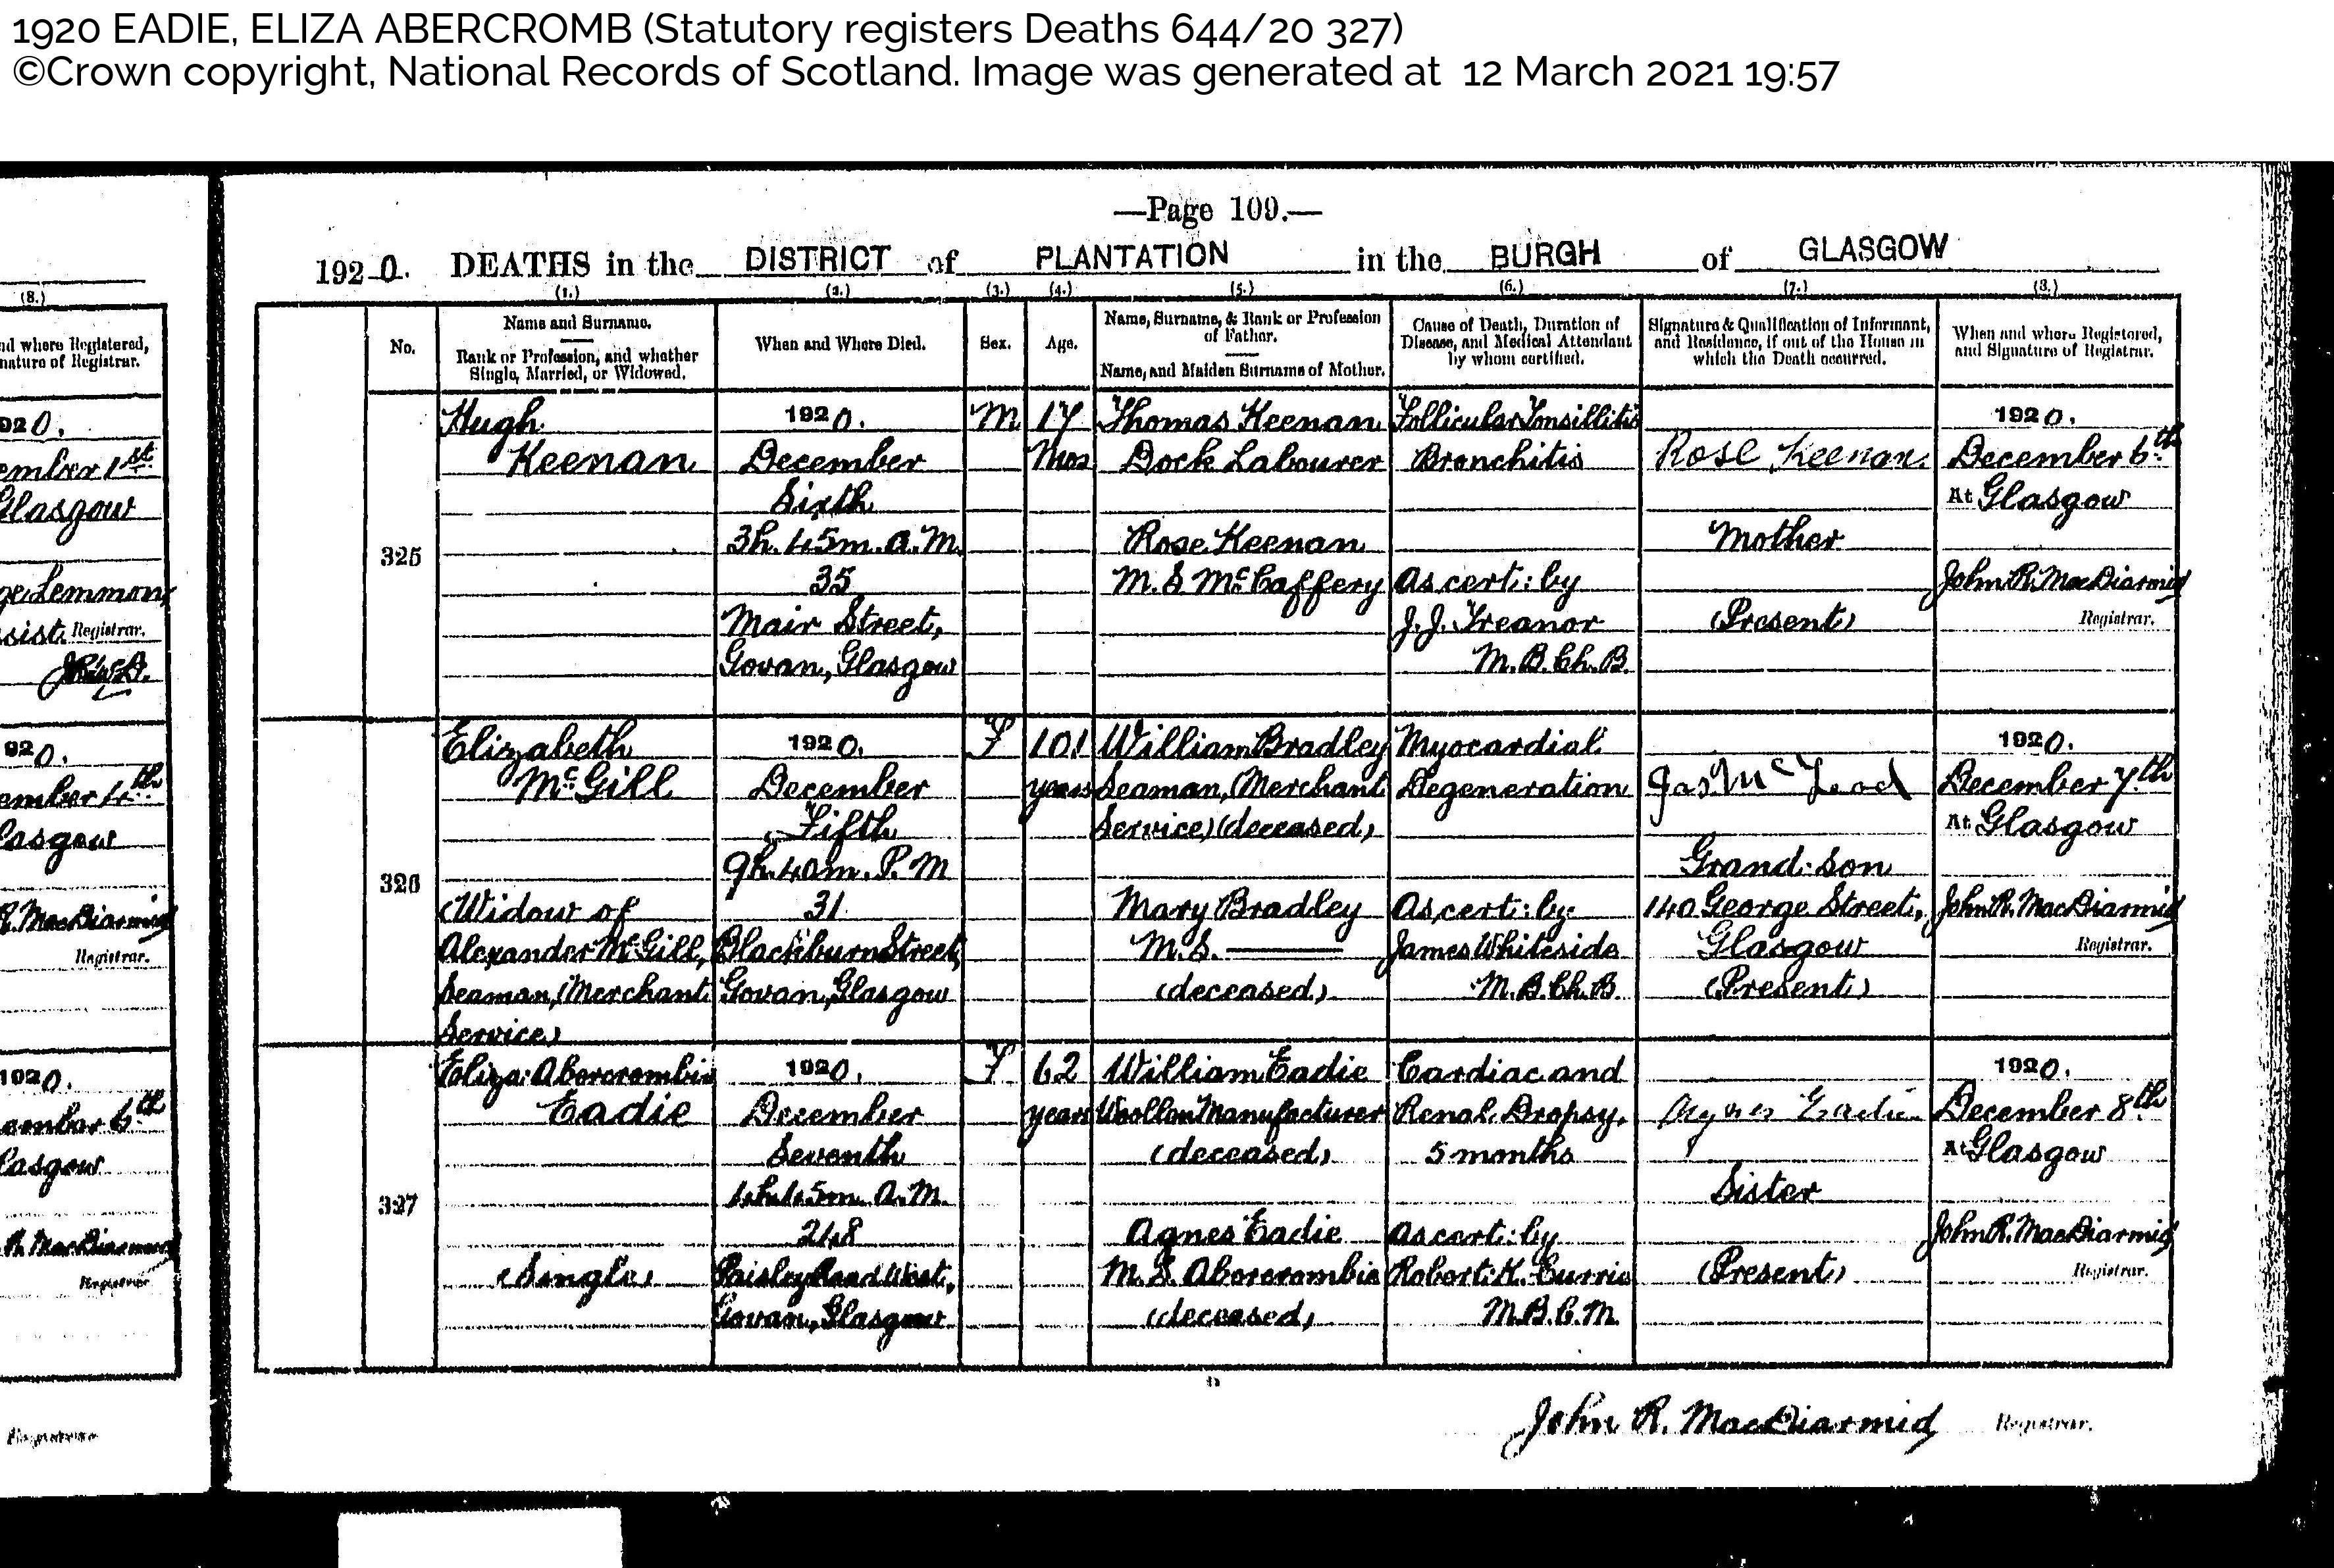 1920 EADIE, ELIZA ABERCROMB (Statutory registers Deaths 644/20 327)
©Crown copyright, National Records of Scotland. Image was generated at 12 March 2021 19:57
—Page 109.—
1920. DEATHS in the DISTRICT of PLANTATION in the BURGH of GLASGOW
(8.)
nd where Registered,
nature of Registrar.
920.
ember 1st
Glasgow
ge Lemmon,
sist. Registrar.
920.
ember 4th
lasgow
R. MacDiarmid
Registrar.
1920.
ember 6th
lasgow
R. MacDiarmid
Registrar
Registrar
(1.) (2.) (3.) (4.) (5.) (6.) (7.) (8.)
No.
Name and Surname.
Rank or Profession, and whether
Single, Married, or Widowed.
When and Where Died.
Sex.
Age.
Name, Surname, & Rank or Profession
of Father.
Name, and Maiden Surname of Mother.
Cause of Death, Duration of
Disease, and Medical Attendant
by whom certified.
Signature & Qualification of Informant,
and Residence, if out of the House in
which the Death occurred.
When and where Registered,
and Signature of Registrar.
325
Hugh
Keenan
1920.
December
Sixth
3h. 45m. A.M.
35
Mair Street,
Govan, Glasgow
M
17
Mos
Thomas Keenan
Dock Labourer
Rose Keenan
M.S McCaffery
Follicular Tonsillitis
Bronchitis
As cert: by
J. J. Treanor
M.B.Ch.B.
Rose Keenan.
Mother
(Present)
1920.
December 6th
At Glasgow
John R. MacDiarmid
Registrar.
326
Elizabeth
McGill
(Widow of
Alexander McGill,
Seaman, (Merchant
Service)
1920.
December
Fifth
9h. 40m. P.M
31
Blackburn Street,
Govan, Glasgow
F
101
years
William Bradley
Seaman, (Merchant
Service) (deceased)
Mary Bradley
M.S. ———
(deceased)
Myocardial
Degeneration
As cert: by
James Whiteside
M.B.Ch.B.
Jas. McLeod
Grand-son
140 George Street,
Glasgow
(Present)
1920.
December 7th
At Glasgow
John R. MacDiarmid
Registrar.
327
Eliza Abercrombie
Eadie
(Single)
1920.
December
Seventh
4h. 45m. A.M.
248
Paisley Road West,
Govan, Glasgow
F
62
years
William Eadie
Woollen Manufacturer
(deceased)
Agnes Eadie
M.S. Abercrombie
(deceased)
Cardiac and
Renal Dropsy,
5 months
As cert: by
Robert K. Currie
M.B.C.M.
Agnes Eadie
Sister
(Present)
1920.
December 8th
At Glasgow
John R. MacDiarmid
Registrar.
John R. MacDiarmid Registrar.